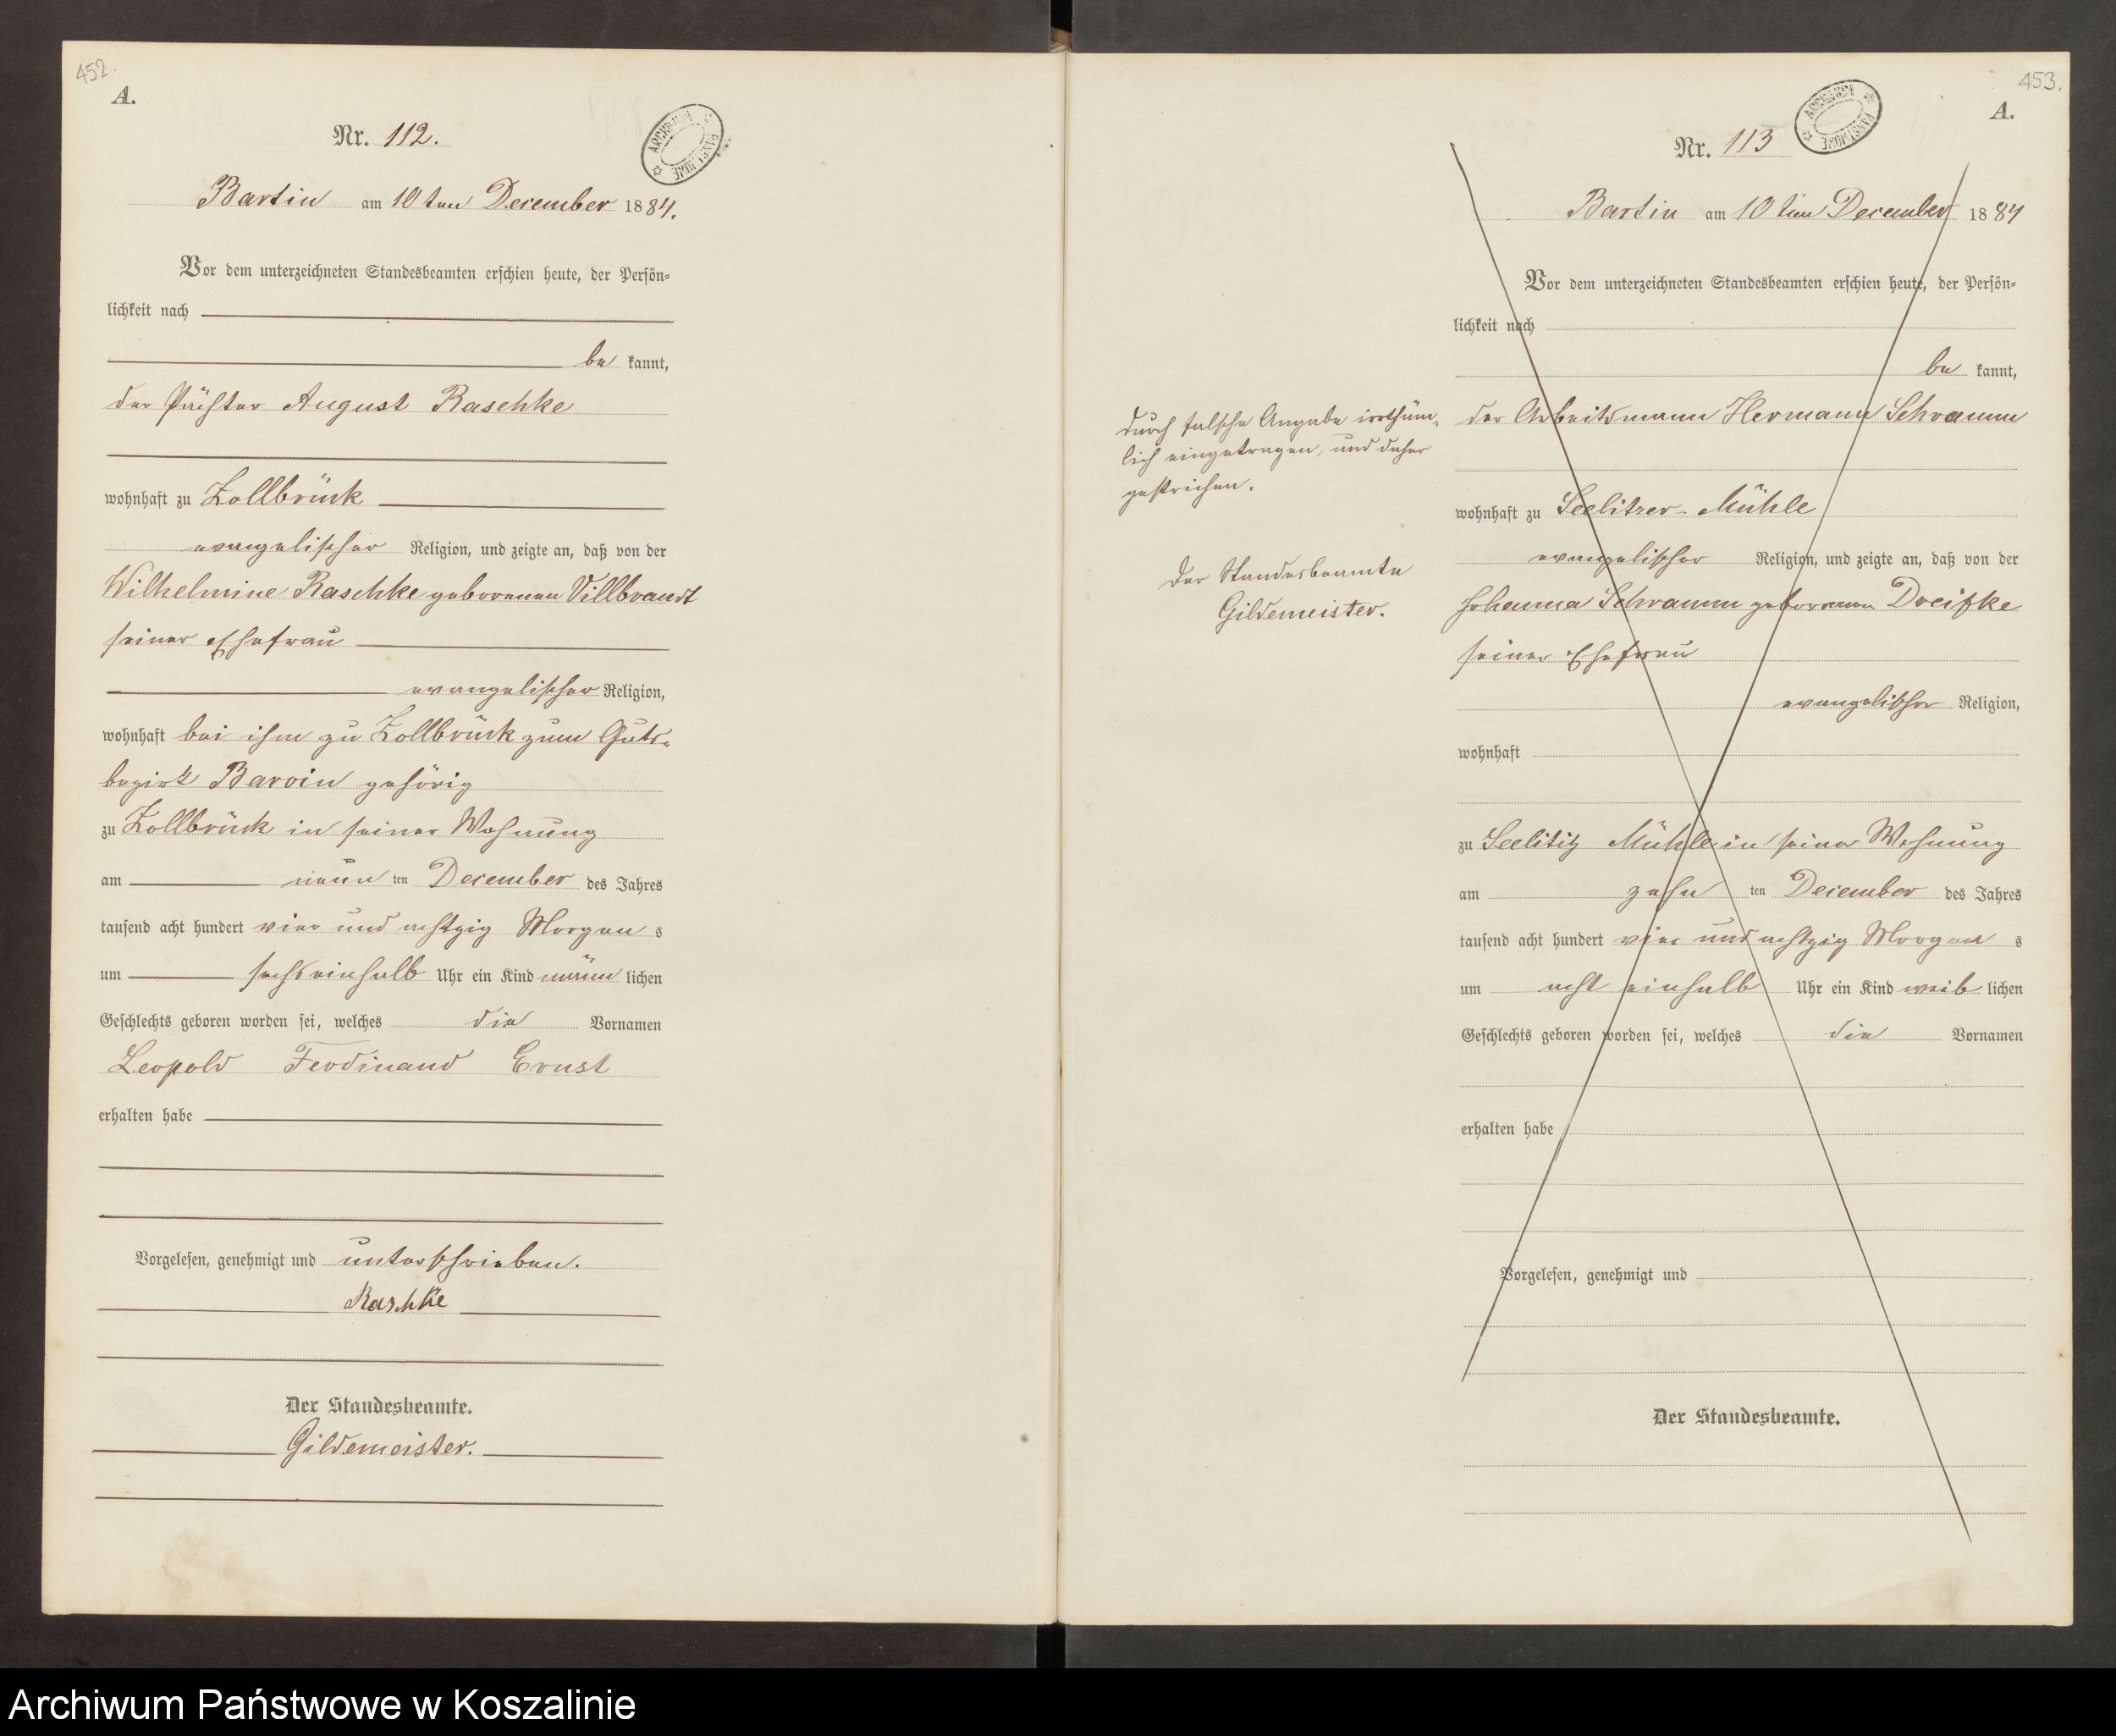 452.
A.
Nr. 112.
ARCHIWUM PAŃSTWOWE
Bartin am 10ten December 1884.
Vor dem unterzeichneten Standesbeamten erschien heute, der Persön-
lichkeit nach
be kannt,
der Pächter August Raschke
wohnhaft zu Zollbrück
evangelischer Religion, und zeigte an, daß von der
Wilhelmine Raschke geborenen Villbrandt
seiner Ehefrau
evangelischer Religion,
wohnhaft bei ihm zu Zollbrück zum Guts-
bezirk Barvin gehörig
zu Zollbrück in seiner Wohnung
am neun ten December des Jahres
tausend acht hundert vier und achtzig Morgen s
um sechs einhalb Uhr ein Kind männ lichen
Geschlechts geboren worden sei, welches die Vornamen
Leopold Ferdinand Ernst
erhalten habe
Vorgelesen, genehmigt und unterschrieben.
Raschke
Der Standesbeamte.
Gildemeister.
453.
A.
Nr. 113
ARCHIWUM PAŃSTWOWE
Bartin am 10ten December 1884
Vor dem unterzeichneten Standesbeamten erschien heute, der Persön-
lichkeit nach
be kannt,
der Arbeitsmann Hermann Schramm
wohnhaft zu Seelitzer-Mühle
evangelischer Religion, und zeigte an, daß von der
Johanna Schramm geborenen Dreifke
seiner Ehefrau
evangelischer Religion,
wohnhaft
zu Seelitz Mühle in seiner Wohnung
am zehn ten December des Jahres
tausend acht hundert vier und achtzig Morgen s
um acht einhalb Uhr ein Kind weib lichen
Geschlechts geboren worden sei, welches die Vornamen
erhalten habe
Vorgelesen, genehmigt und
Der Standesbeamte.
durch falsche Angabe irrthüm-
lich eingetragen, und daher
gestrichen.
Der Standesbeamte
Gildemeister.
Archiwum Państwowe w Koszalinie